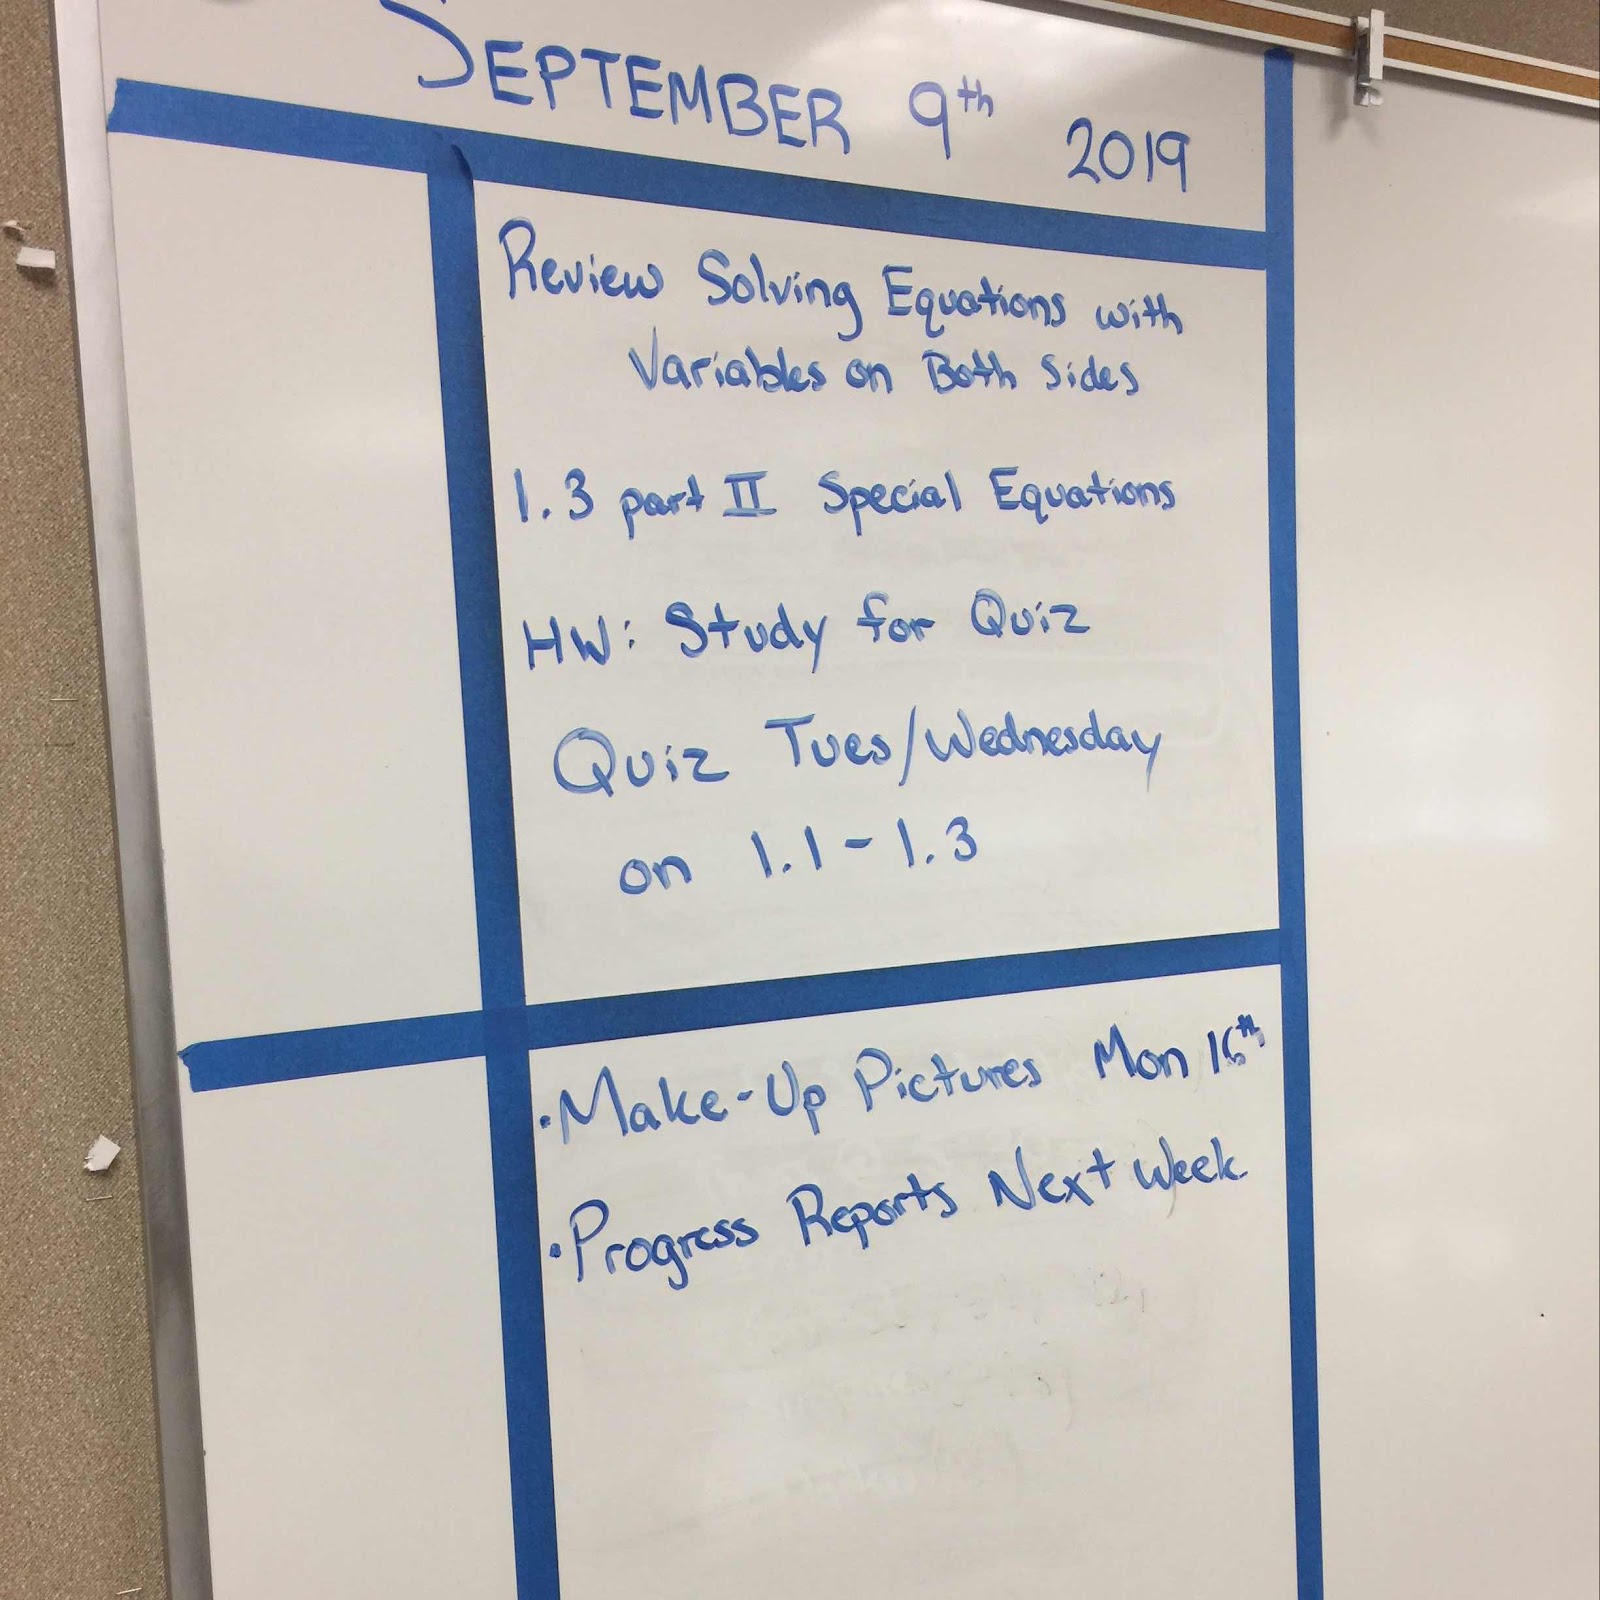 SEPTEMBER 9th 2019
Review Solving Equations with
Variables on Both Sides
1.3 part II Special Equations
HW: Study for Quiz
Quiz Tues/Wednesday
on 1.1 - 1.3
• Make-Up Pictures Mon 16th
• Progress Reports Next Week